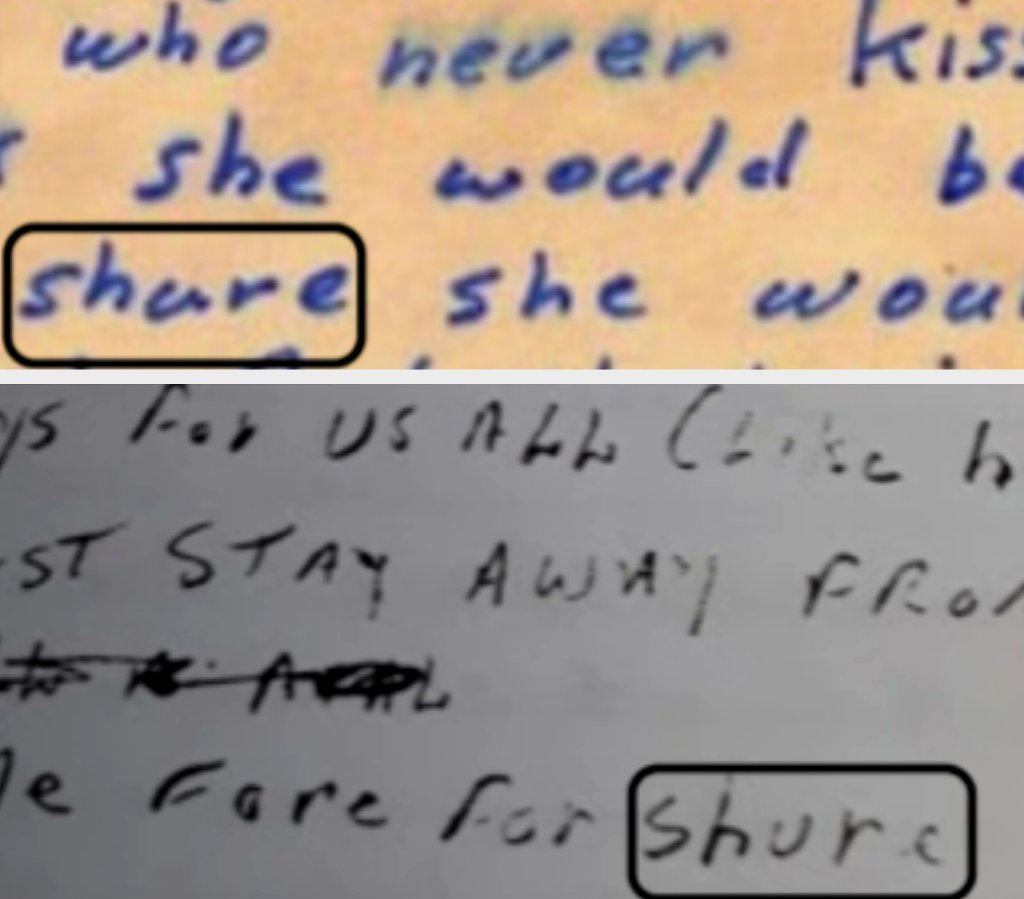 who never kiss
she would be
shure she woul
ys For US ALL (Like h
ST STAY AWAY FROM
Me Fore For shure